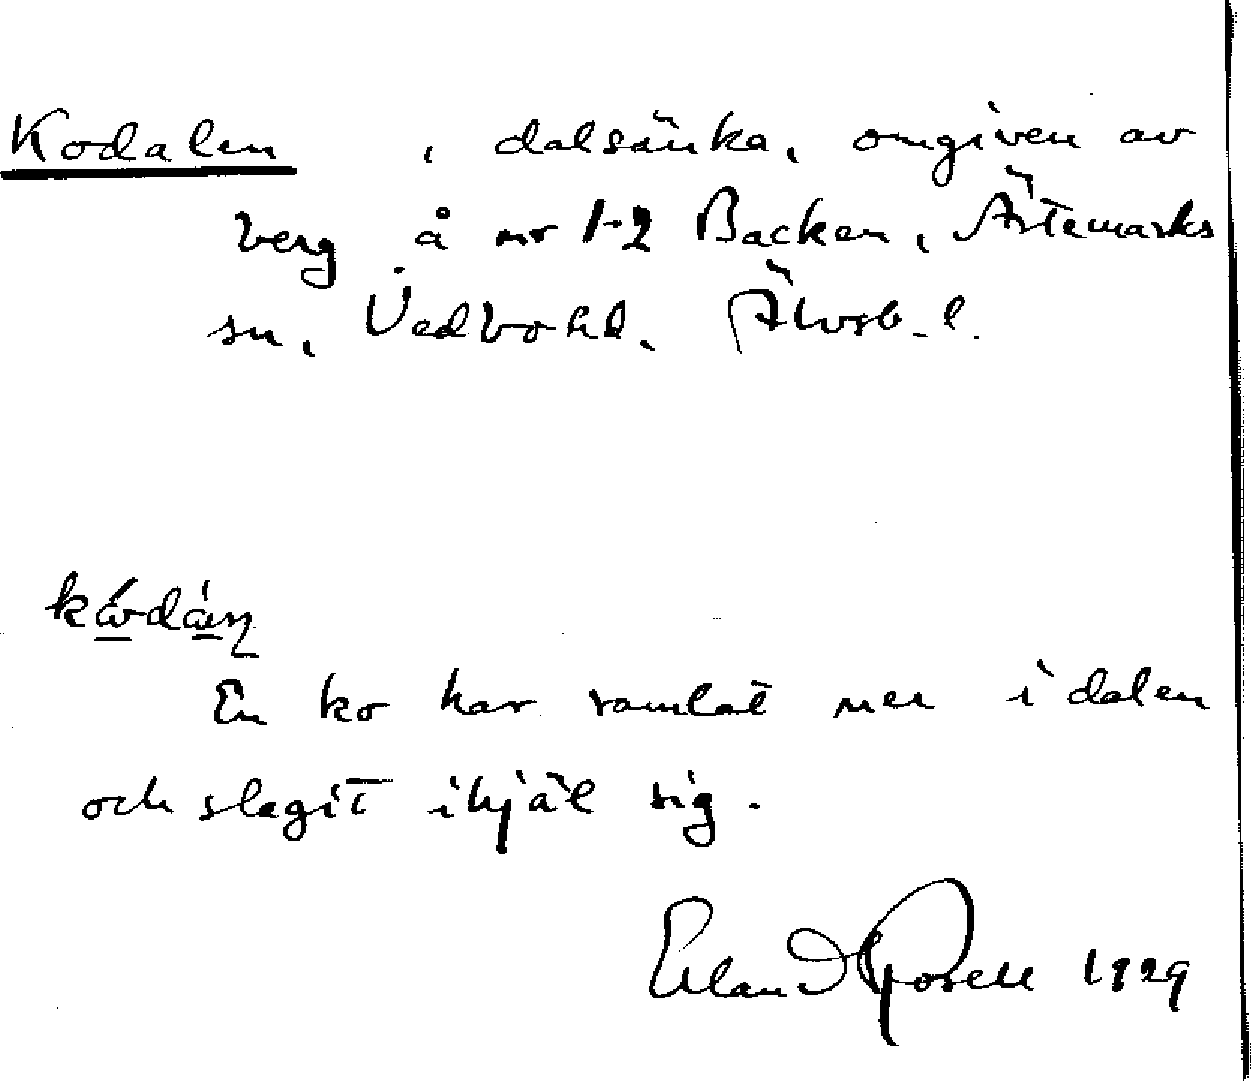 Kodalen, dalsänka, omgiven av
berg å nr 1-2 Backen, Ärtemarks
sn, Vedbo hd. Älvsb. l.
En ko har ramlat ner i dalen
och slagit ihjäl sig.
Erland Rosell 1929